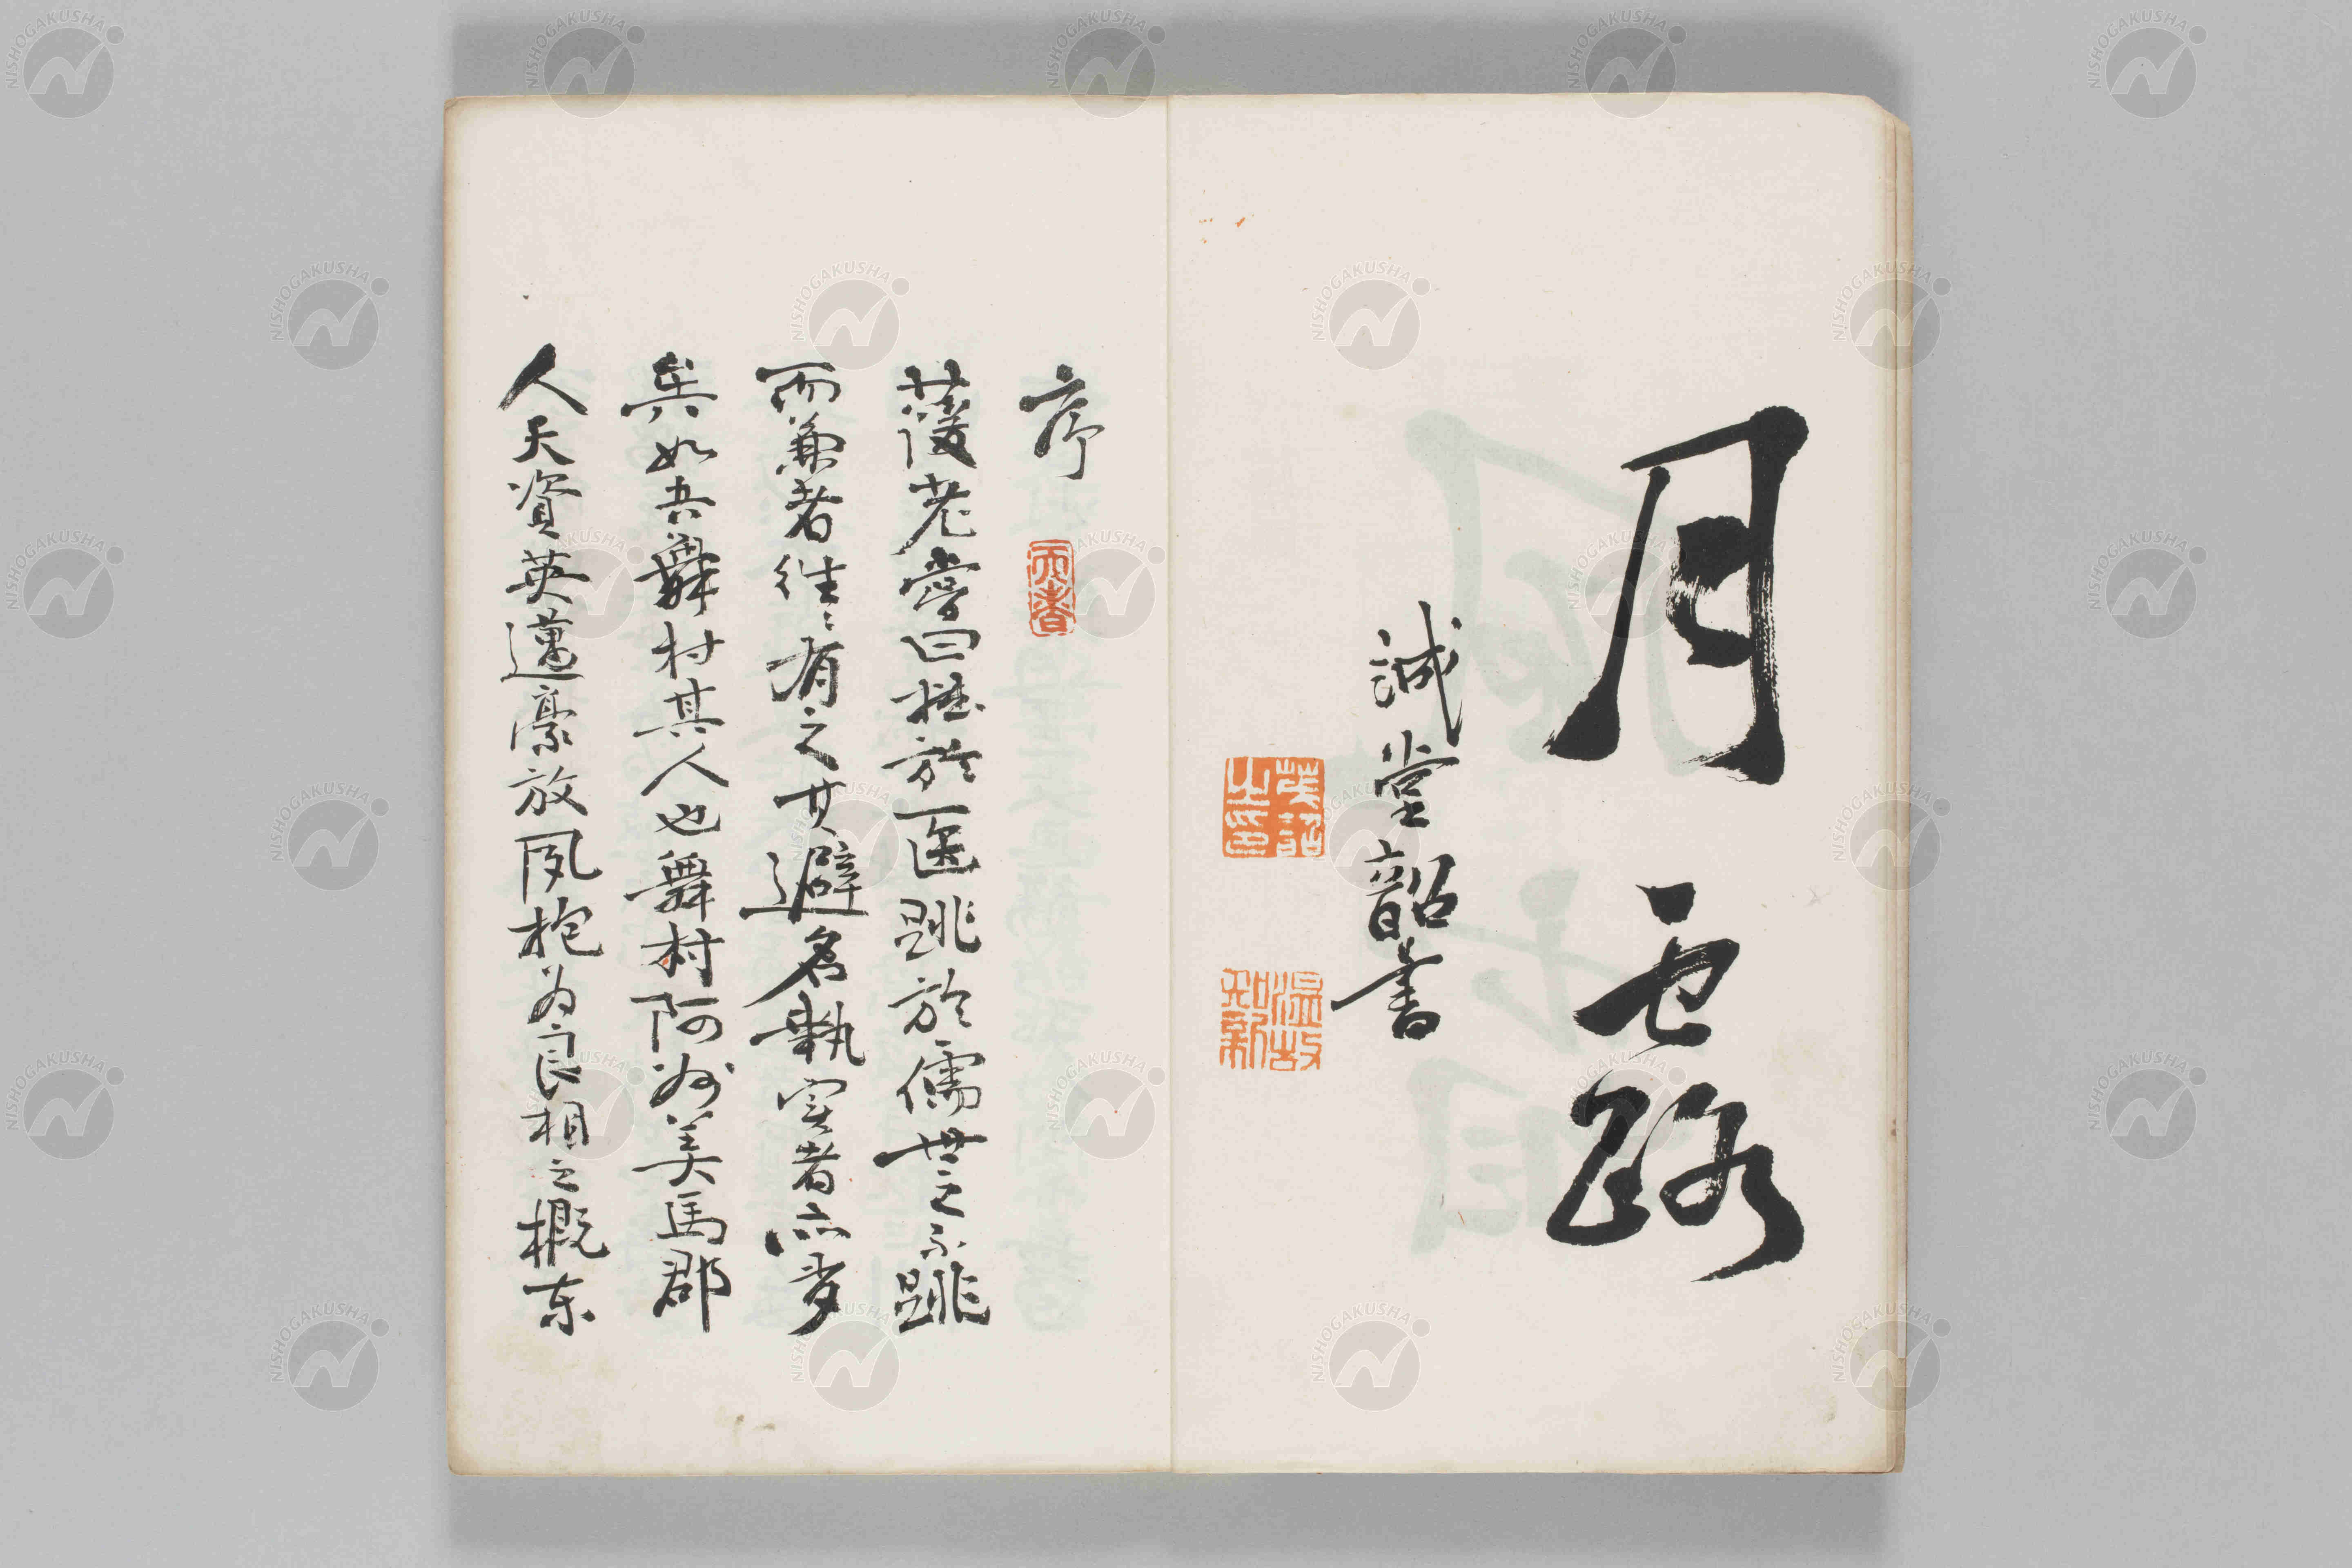 月色路
誠堂韶書
温故知新
序
蘐老嘗曰拙於医跳於儒世之不跳
而兼者往〻有之其避名執実者亦多
矣如吾舞村其人也舞村阿州美馬郡
人天資英邁豪放夙抱為良相之概東
NISHOGAKUSHA